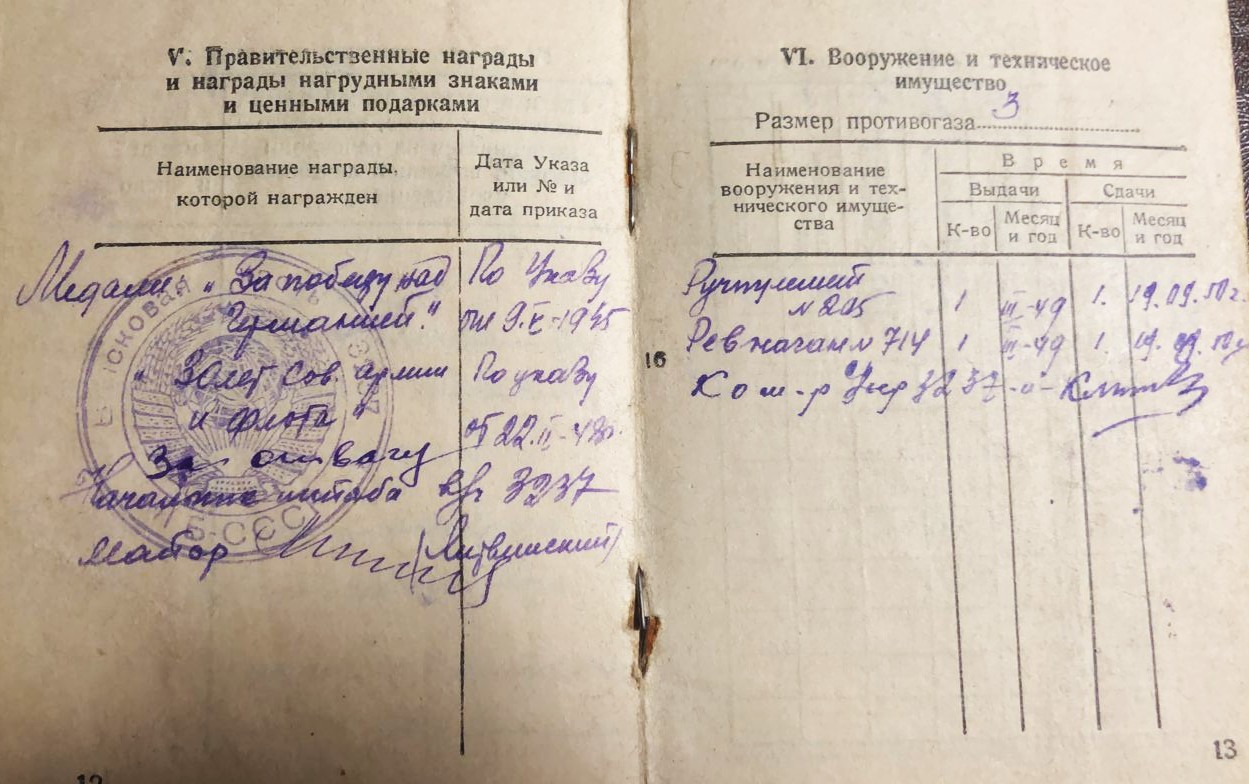 V. Правительственные награды
и награды нагрудными знаками
и ценными подарками
Наименование награды,
которой награжден
Дата Указа
или № и
дата приказа
Медали „За победу над
Германией."
По Указу
от 9.V-1945
" 30 лет Сов. армии
и флота"
По указу
от 22.II-48г.
За отвагу
Начальник штаба в/ч 3237
майор (Литвинский)
ВОЙСКОВАЯ ЧАСТЬ 3237
СССР
12
VI. Вооружение и техническое
имущество
Размер противогаза 3
Наименование
вооружения и тех-
нического имуще-
ства
Время
Выдачи
Сдачи
К-во
Месяц
и год
К-во
Месяц
и год
Ручпулемет
№ 205 1 III-49 1. 19.09.50г.
16
Рев наган № 714 1 III-49 1. 19.09.50г
Ком-р 3237
13